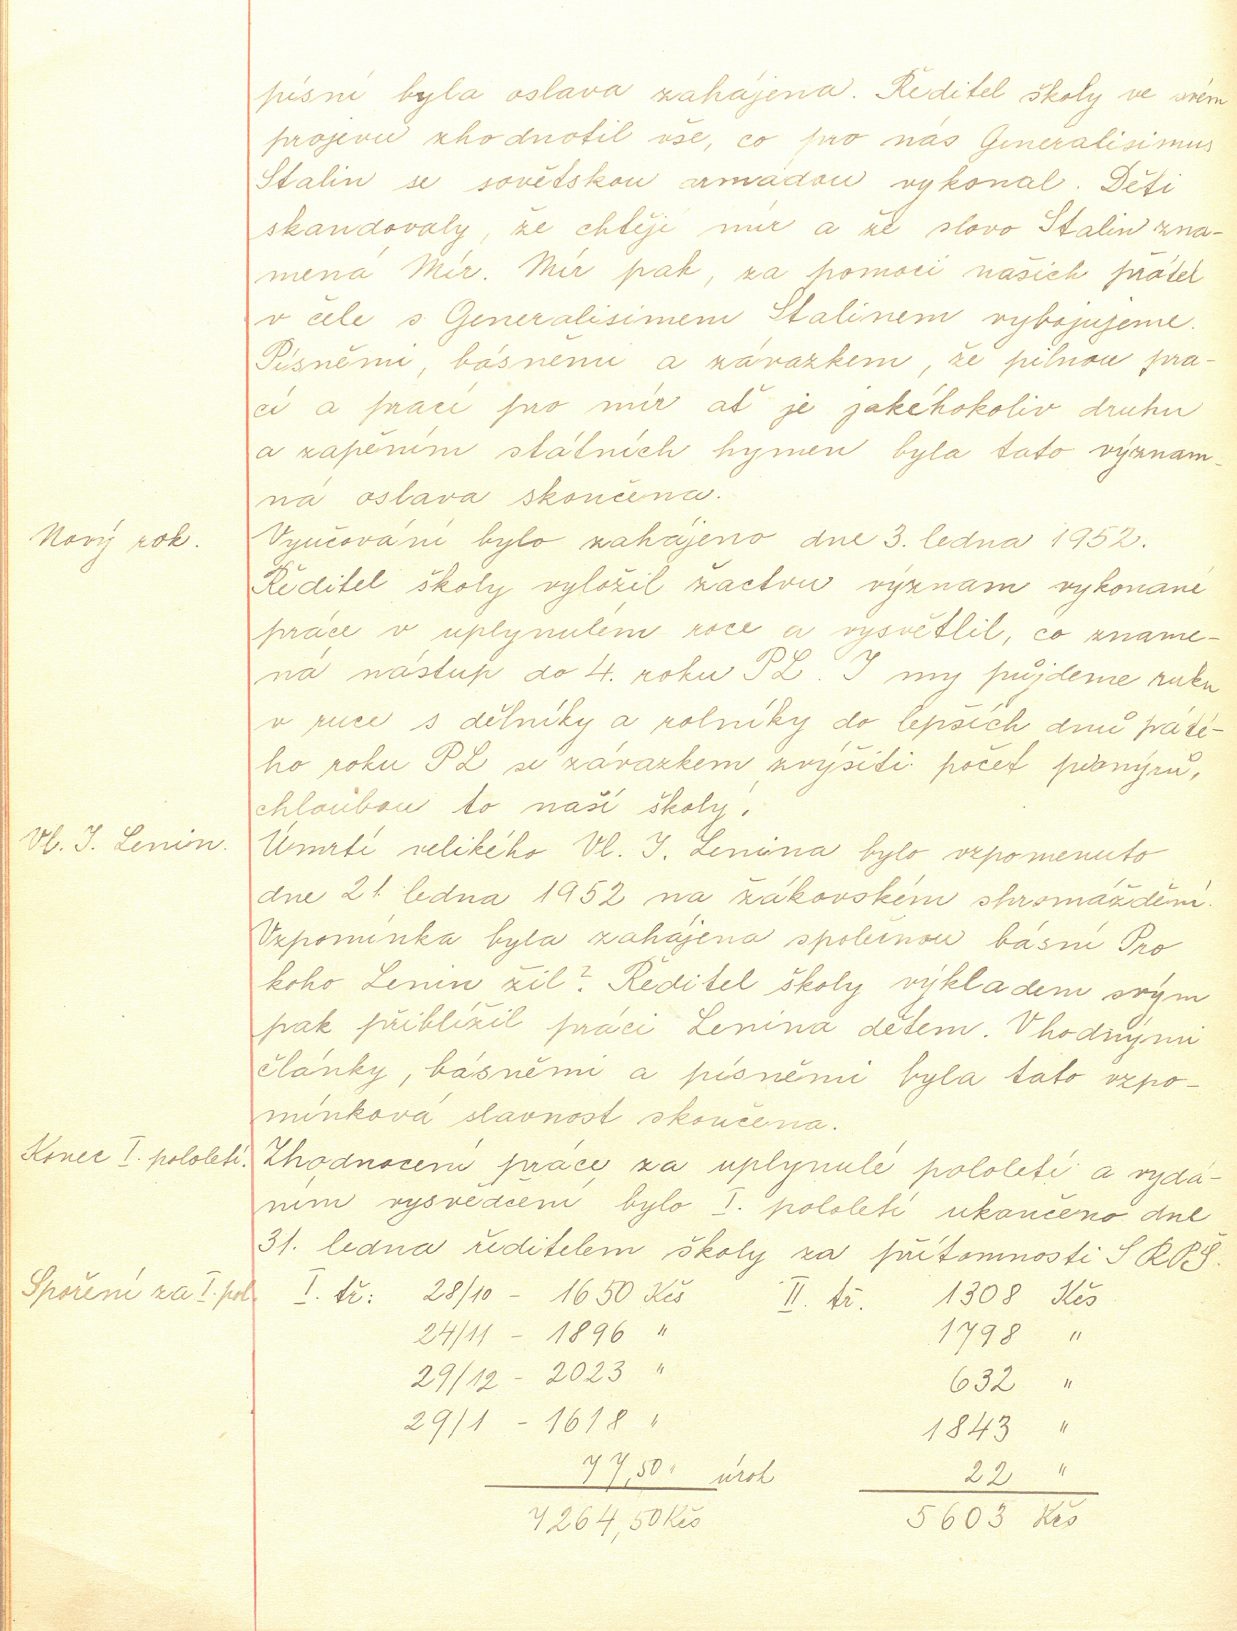 písní byla oslava zahájena. Ředitel školy ve svém
projevu zhodnotil vše, co pro nás Generalisimus
Stalin se sovětskou armádou vykonal. Děti
skandovaly, že chtějí mír a že slovo Stalin zna-
mená Mír. Mír pak, za pomoci našich přátel
v čele s Generalisimem Stalinem vybojujeme.
Písněmi, básněmi a závazkem, že pilnou pra-
cí a prací pro mír ať je jakéhokoliv druhu
a zapěním státních hymen byla tato význam-
ná oslava skončena.
Nový rok. Vyučování bylo zahájeno dne 3. ledna 1952.
Ředitel školy vyložil žactvu význam vykonané
práce v uplynulém roce a vysvětlil, co zname-
ná nástup do 4. roku PL. I my půjdeme ruku
v ruce s dělníky a rolníky do lepších dnů páté-
ho roku PL se závazkem zvýšiti počet pionýrů,
chloubou to naší školy.
Vl. I. Lenin. Úmrtí velikého Vl. I. Lenina bylo vzpomenuto
dne 21. ledna 1952 na žákovském shromáždění.
Vzpomínka byla zahájena společnou básní Pro
koho Lenin žil? Ředitel školy výkladem svým
pak přiblížil práci Lenina dětem. Vhodnými
články, básněmi a písněmi byla tato vzpo-
mínková slavnost skončena.
Konec I. pololetí. Zhodnocení práce za uplynulé pololetí a vydá-
ním vysvědčení bylo I. pololetí ukončeno dne
31. ledna ředitelem školy za přítomnosti SRPŠ.
Spoření za I. pol. I. tř: 28/10 - 1650 Kčs II. tř. 1308 Kčs
24/11 - 1896 " 1798 "
29/12 - 2023 " 632 "
29/1 - 1618 " 1843 "
77,50 " úrok 22 "
7264,50 Kčs 5603 Kčs